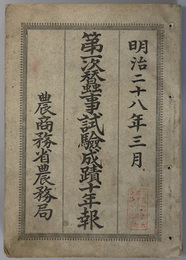 明治二十八年三月
第一次蠶事試驗成蹟十年報
農商務省農務局